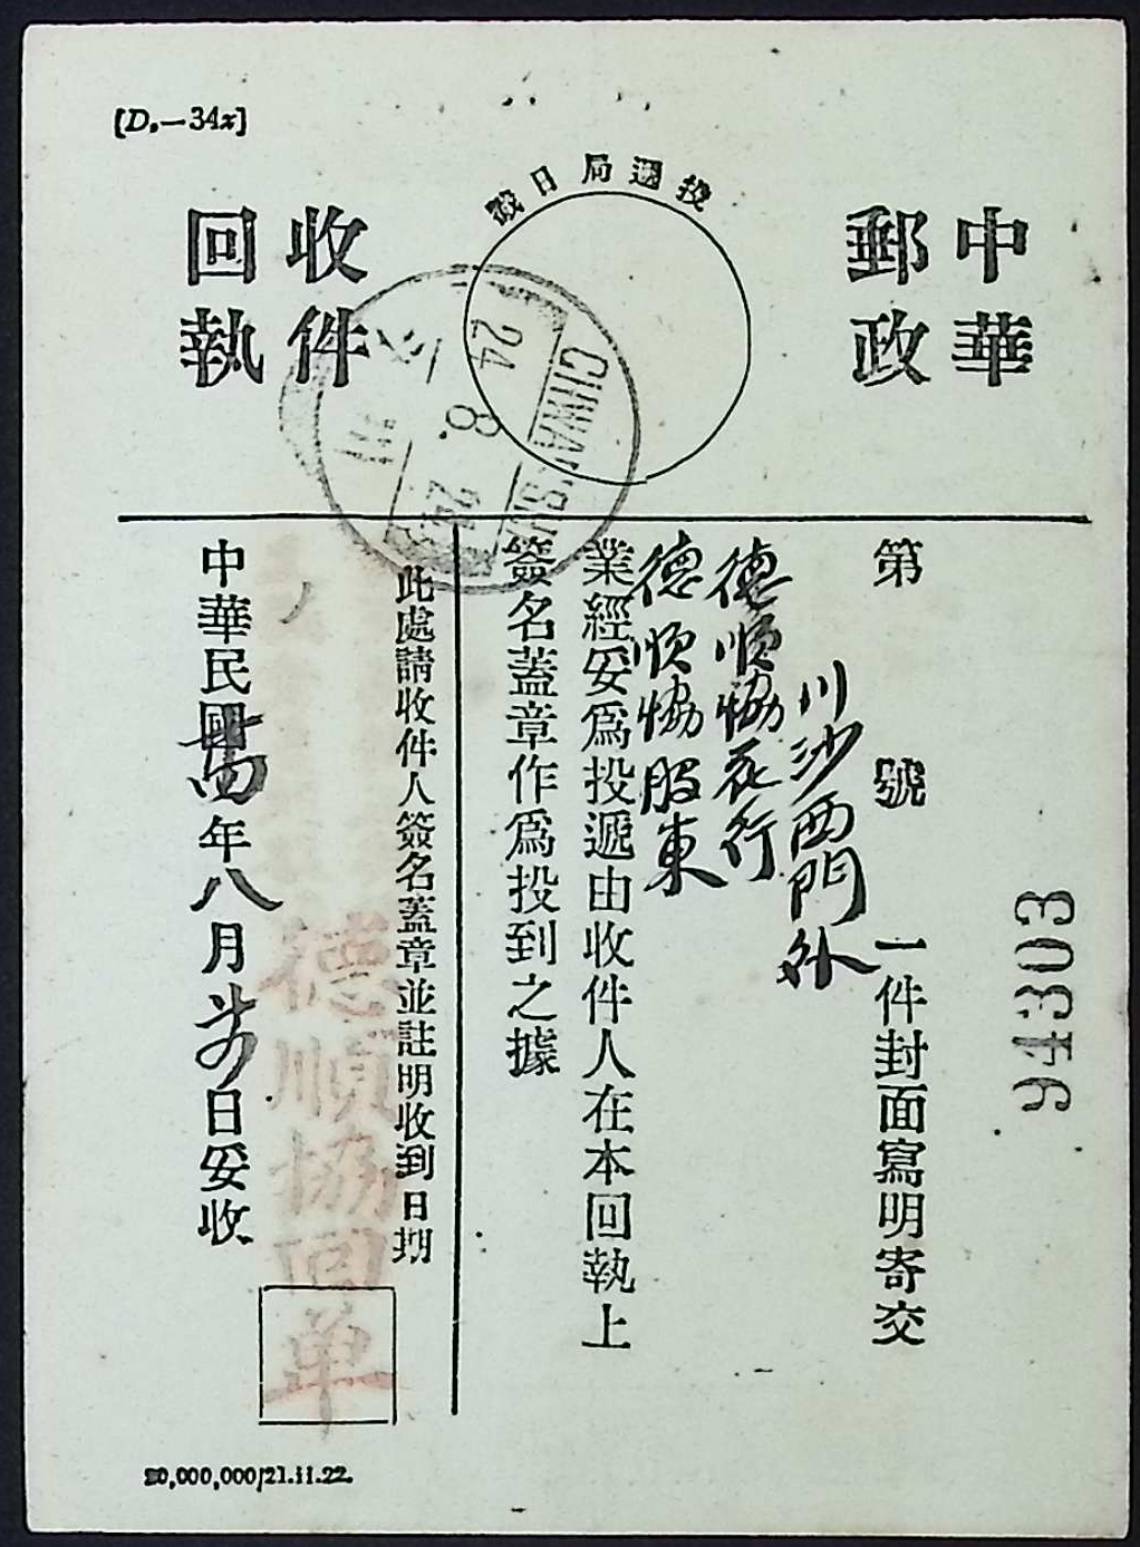 [D.—34x]
中華
郵政
投遞局日戳
收件
回執
24
8.
24
川
94303
第 號 一件封面寫明寄交
川沙西門外
德順協花行
德順協股東
業經妥爲投遞由收件人在本回執上
簽名蓋章作爲投到之據
此處請收件人簽名蓋章並註明收到日期
德順協回單
中華民國 年八月 日妥收
20,000,000/21.11.22.